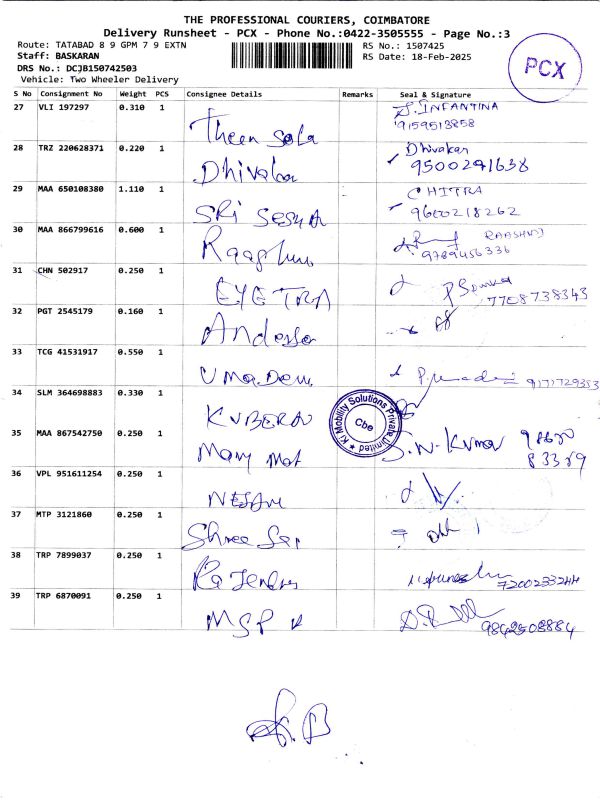 THE PROFESSIONAL COURIERS, COIMBATORE
Delivery Runsheet - PCX - Phone No.:0422-3505555 - Page No.:3
Route: TATABAD 8 9 GPM 7 9 EXTN RS No.: 1507425
Staff: BASKARAN RS Date: 18-Feb-2025
DRS No.: DCJB150742503
Vehicle: Two Wheeler Delivery
PCX
S No Consignment No Weight PCS Consignee Details Remarks Seal & Signature
27 VLI 197297 0.310 1 S. INFANTINA
Theen 9159513858
28 TRZ 220628371 0.220 1 Dhivakar
9500291638
29 MAA 650108380 1.110 1 CHITRA
SRi 9600218262
30 MAA 866799616 0.600 1
9789456336
31 CHN 502917 0.250 1
EYE TRA 7708738343
32 PGT 2545179 0.160 1
33 TCG 41531917 0.550 1
Uma Devi
34 SLM 364698883 0.330 1
KUBERAN
Ki Mobility Solutions Private Limited
Cbe
35 MAA 867542750 0.250 1
Mary Mat S.N. Kumar
36 VPL 951611254 0.250 1
37 MTP 3121860 0.250 1
Shree Sai
38 TRP 7899037 0.250 1
7200233244
39 TRP 6870091 0.250 1
MSP 9842508884